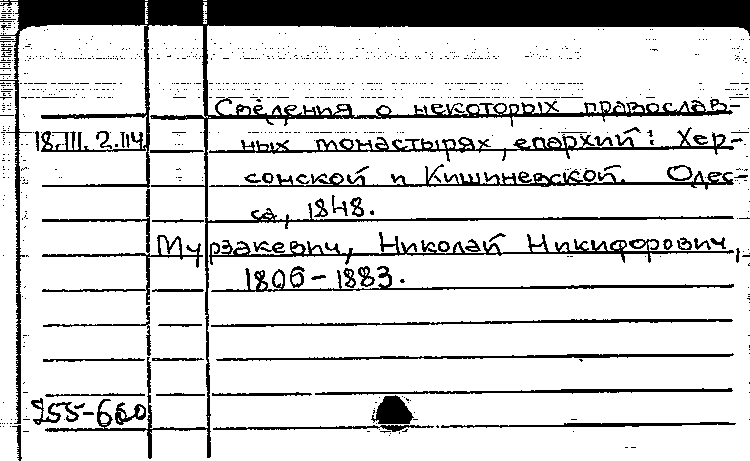 Сведения о некоторых православ-
18.III.2.114 ных монастырях, епархий: Хер-
сонской и Кишиневской. Одес-
са, 1848.
Мурзакевич, Николай Никифорович,
1806-1883.
255-660